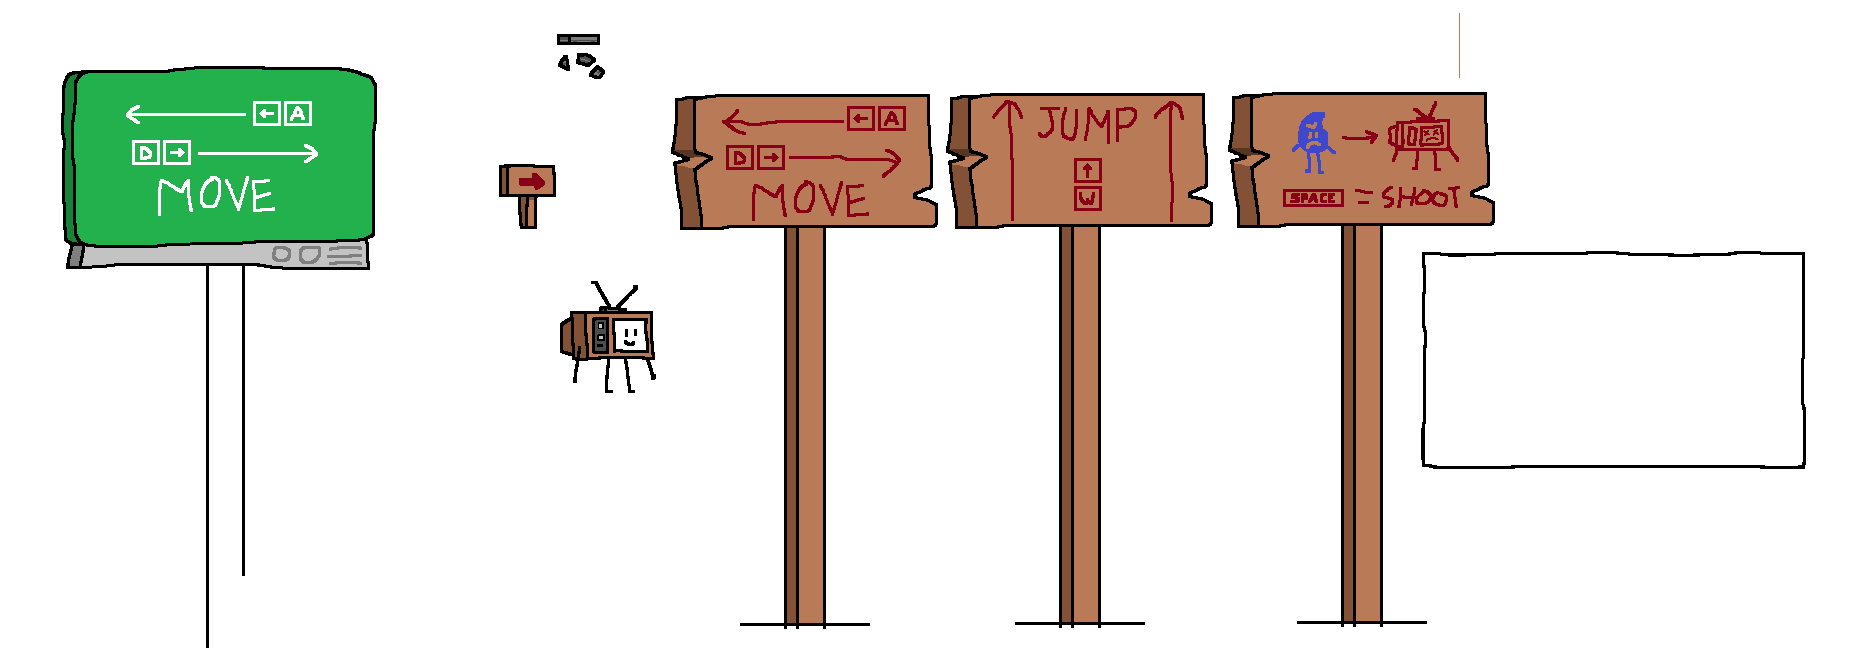 ← A
D →
MOVE
← A
D →
MOVE
JUMP
↑
W
SPACE = SHOOT